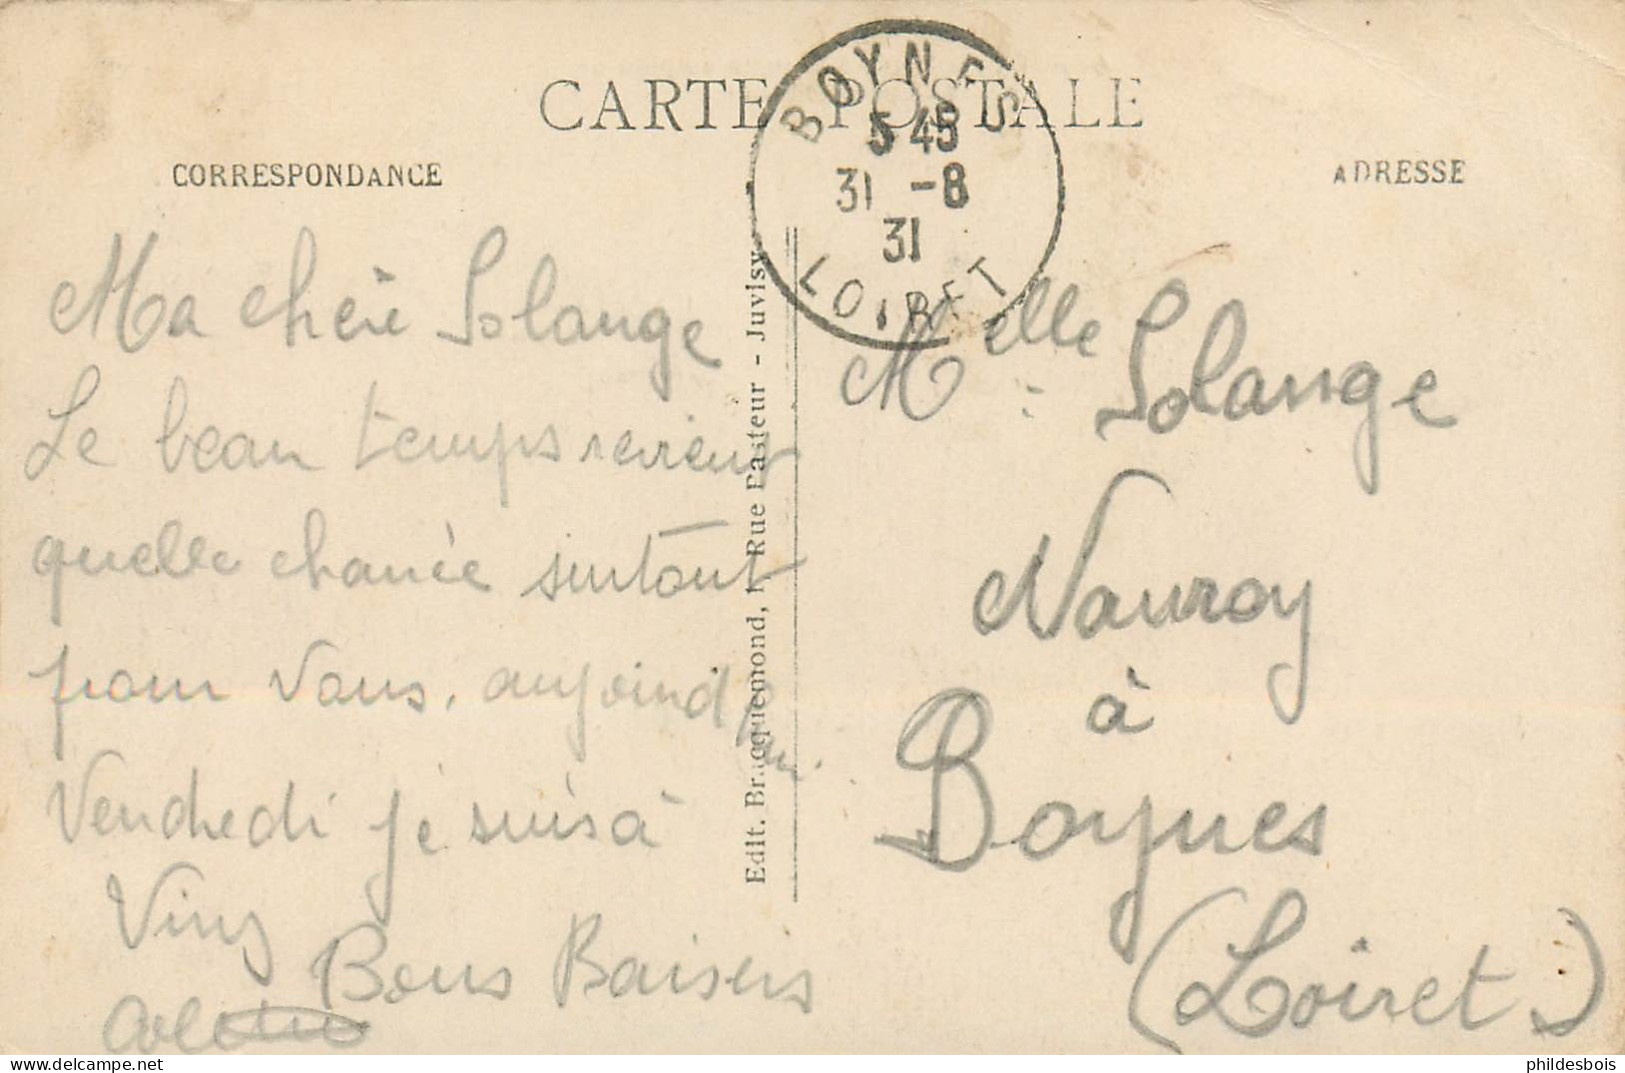 CARTE POSTALE
BOYNES
5 45
31 -8
31
LOIRET
CORRESPONDANCE
ADRESSE
Ma chère Solange
Le beau temps revient
quelle chance surtout
pour vous, aujourd'hui
Vendredi je suis à
Viry
Bons Baisers
Edit. Bracquemond, 1, Rue Pasteur - Juvisy
Melle Solange
Nauroy
à
Boynes
(Loiret)
delcampe.net
phildesbois